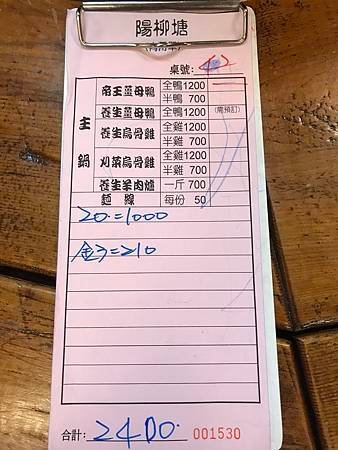 陽柳塘
桌號:
主鍋
帝王薑母鴨 全鴨1200
半鴨 700
養生薑母鴨 全鴨1200 (需預訂)
養生烏骨雞 半雞 700
全雞1200
刈菜烏骨雞 半雞 700
養生羊肉爐 一斤 700
麵線 每份 50
20.=1000
金3=210
合計: 2400. 001530